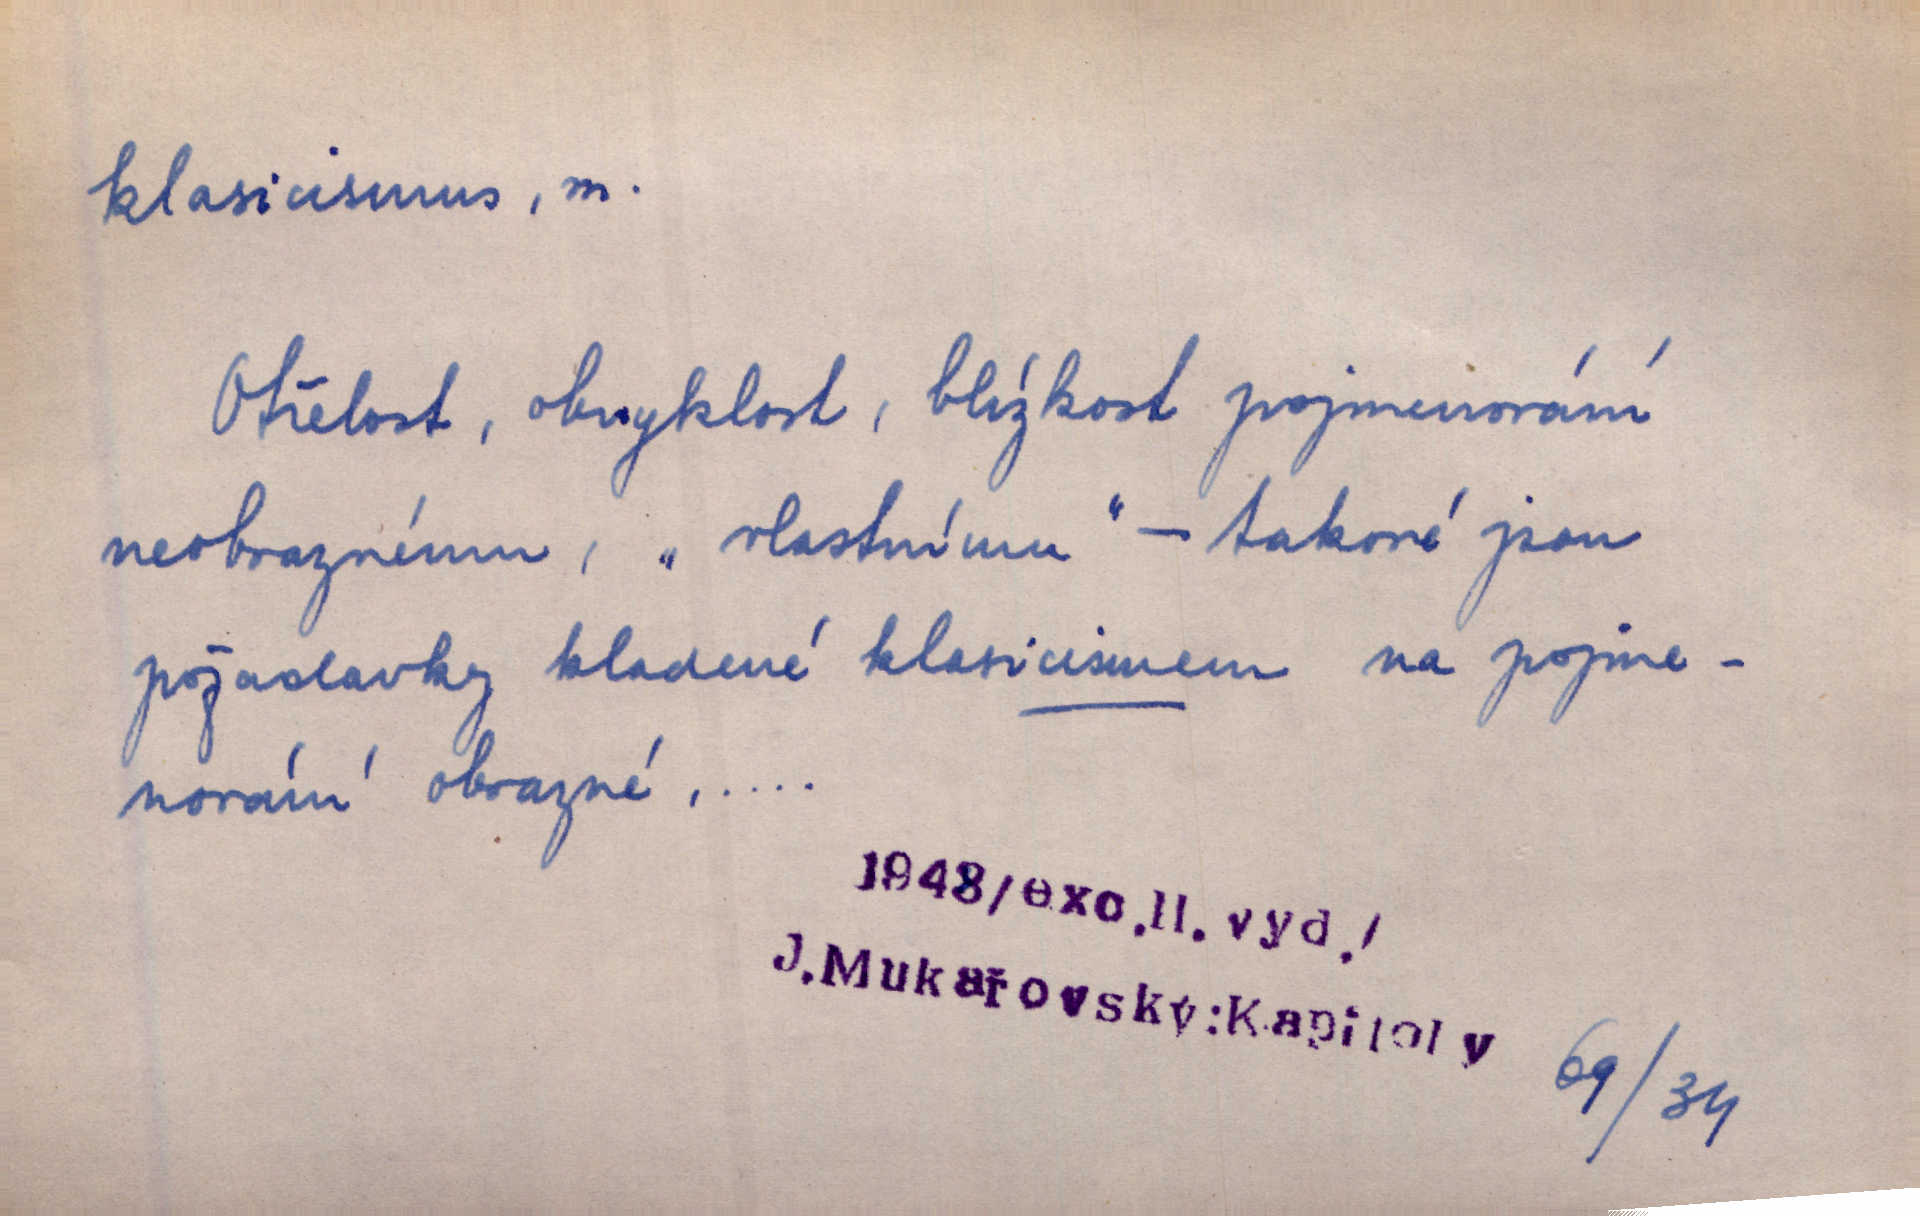 klasicismus, m.
Otřelost, obvyklost, blízkost pojmenování
neobraznému, „vlastnímu“ — takové jsou
požadavky kladené klasicismem na pojme-
nování obrazné, .....
1948/exc.II.vyd./
J.Mukařovský:Kapitoly
69/34